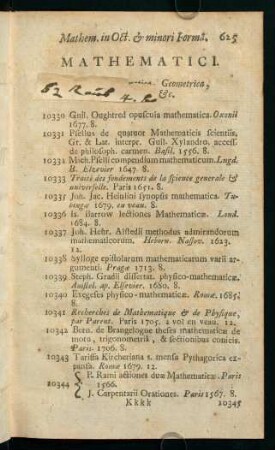 Mathem. in Oct. & minori Formâ. 625
MATHEMATICI.
Geometrica,
&c.
10330 Guil. Oughtred opuscula mathematica. Oxonii
1677. 8.
10331 Psellus de quatuor Mathematicis scientiis,
Gr. & Lat. interpr. Guil. Xylandro, accessit
de philosoph. carmen. Basil. 1556. 8.
10332 Mich. Pselli compendium mathematicum. Lugd.
B. Elzevier 1647. 8.
10333 Traité des fondemens de la science generale &
universelle. Paris 1651. 8.
10337 Jon. Jac. Heinlini synopsis mathematica. Tu-
bingæ 1679. en veau. 8.
10336 Is. Barrow lectiones Mathematicæ. Lond.
1684. 8.
10337 Joh. Henr. Alstedii methodus admirandorum
mathematicorum. Herborn. Nassov. 1623.
12.
10338 Sylloge epistolarum mathematicarum varii ar-
gumenti. Pragæ 1713. 8.
10339 Steph. Gradii dissertat. physico-mathematicæ.
Amstel. ap. Elzevier. 1680. 8.
10340 Exegeses physico-mathematicæ. Romæ. 1685.
8.
10341 Recherches de Mathematique & de Physique,
par Parent. Paris 1705. 2 vol en veau. 12.
10342 Bern. de Braugelogne theses mathematicæ de
motu, trigonometriâ, & sectionibus conicis.
Paris. 1706. 8.
10343 Tariffa Kircheriana s. mensa Pythagorica ex-
pansa. Romæ 1679. 12.
P. Rami actiones duæ Mathematicæ. Paris
10344 1566.
J. Carpentarii Orationes. Paris 1567. 8.
Kkkk 10345